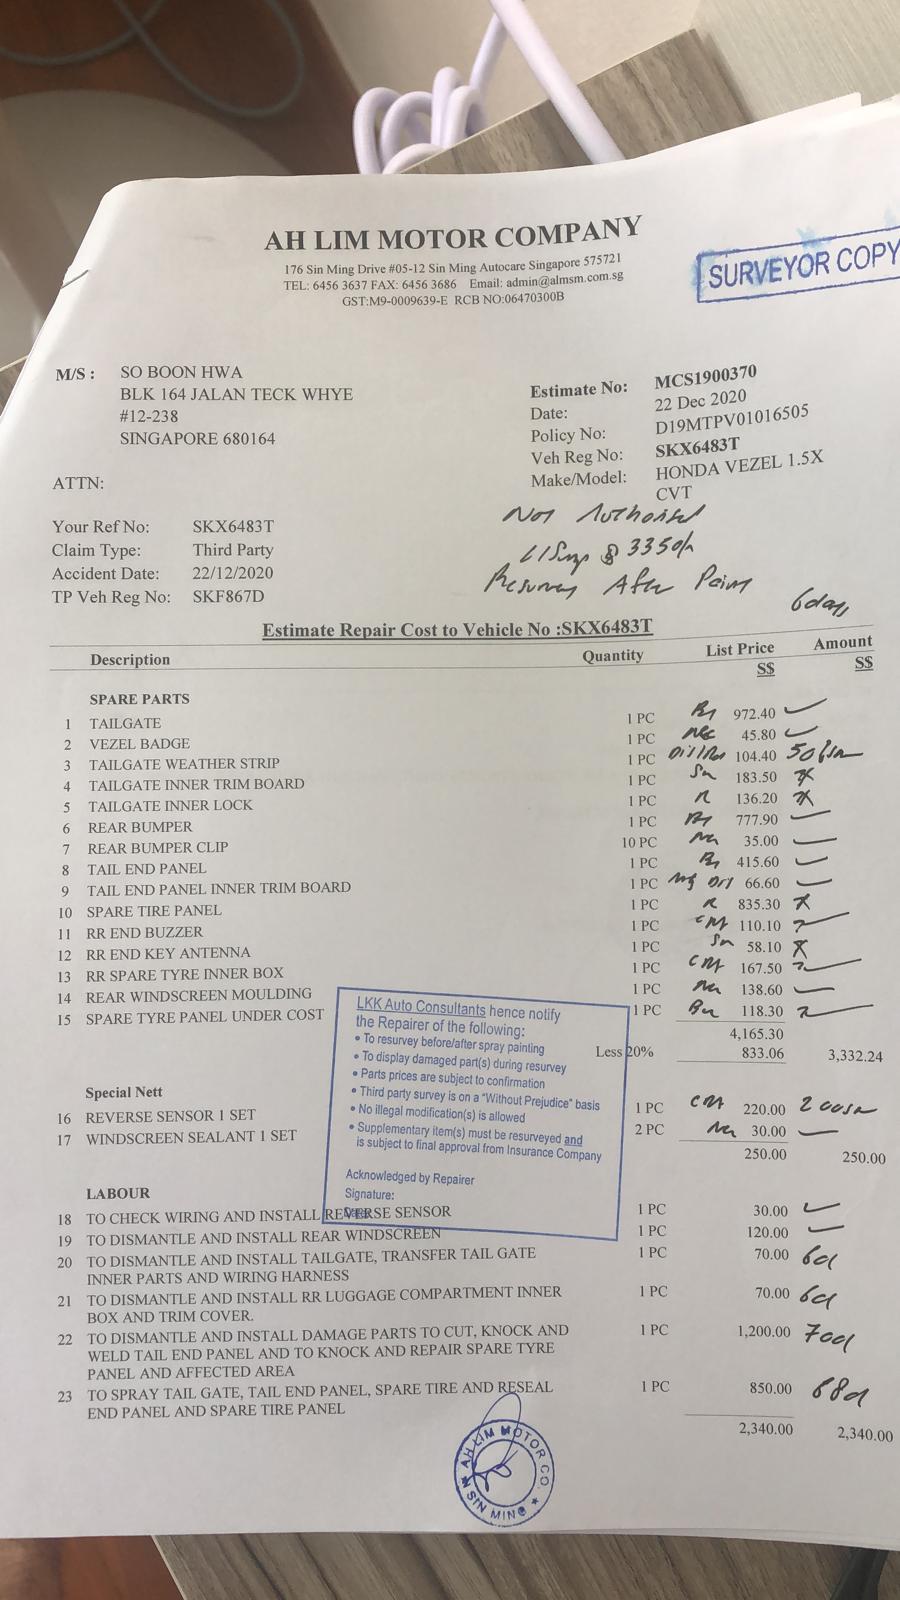 AH LIM MOTOR COMPANY
176 Sin Ming Drive #05-12 Sin Ming Autocare Singapore 575721
TEL: 6456 3637 FAX: 6456 3686 Email: admin@almsm.com.sg
GST:M9-0009639-E RCB NO:06470300B
SURVEYOR COPY
M/S : SO BOON HWA
BLK 164 JALAN TECK WHYE
#12-238
SINGAPORE 680164
ATTN:
Estimate No: MCS1900370
Date: 22 Dec 2020
Policy No: D19MTPV01016505
Veh Reg No: SKX6483T
Make/Model: HONDA VEZEL 1.5X
CVT
Your Ref No: SKX6483T
Claim Type: Third Party
Accident Date: 22/12/2020
TP Veh Reg No: SKF867D
Not Authorised
Resurvey After Paint
6 days
Estimate Repair Cost to Vehicle No :SKX6483T
Description Quantity List Price Amount
S$ S$
SPARE PARTS
1 TAILGATE 1 PC 972.40
2 VEZEL BADGE 1 PC 45.80
3 TAILGATE WEATHER STRIP 1 PC 104.40
4 TAILGATE INNER TRIM BOARD 1 PC 183.50
5 TAILGATE INNER LOCK 1 PC 136.20
6 REAR BUMPER 1 PC 777.90
7 REAR BUMPER CLIP 10 PC 35.00
8 TAIL END PANEL 1 PC 415.60
9 TAIL END PANEL INNER TRIM BOARD 1 PC 66.60
10 SPARE TIRE PANEL 1 PC 835.30
11 RR END BUZZER 1 PC 110.10
12 RR END KEY ANTENNA 1 PC 58.10
13 RR SPARE TYRE INNER BOX 1 PC 167.50
14 REAR WINDSCREEN MOULDING 1 PC 138.60
15 SPARE TYRE PANEL UNDER COST 1 PC 118.30
4,165.30
Less 20% 833.06 3,332.24
LKK Auto Consultants hence notify
the Repairer of the following:
• To resurvey before/after spray painting
• To display damaged part(s) during resurvey
• Parts prices are subject to confirmation
• Third party survey is on a "Without Prejudice" basis
• No illegal modification(s) is allowed
• Supplementary item(s) must be resurveyed and
is subject to final approval from Insurance Company
Acknowledged by Repairer
Signature:
Special Nett
16 REVERSE SENSOR 1 SET 1 PC 220.00
17 WINDSCREEN SEALANT 1 SET 2 PC 30.00
250.00 250.00
LABOUR
18 TO CHECK WIRING AND INSTALL REVERSE SENSOR 1 PC 30.00
19 TO DISMANTLE AND INSTALL REAR WINDSCREEN 1 PC 120.00
20 TO DISMANTLE AND INSTALL TAILGATE, TRANSFER TAIL GATE 1 PC 70.00
INNER PARTS AND WIRING HARNESS
21 TO DISMANTLE AND INSTALL RR LUGGAGE COMPARTMENT INNER 1 PC 70.00
BOX AND TRIM COVER.
22 TO DISMANTLE AND INSTALL DAMAGE PARTS TO CUT, KNOCK AND 1 PC 1,200.00
WELD TAIL END PANEL AND TO KNOCK AND REPAIR SPARE TYRE
PANEL AND AFFECTED AREA
23 TO SPRAY TAIL GATE, TAIL END PANEL, SPARE TIRE AND RESEAL 1 PC 850.00
END PANEL AND SPARE TIRE PANEL
2,340.00 2,340.00
AH LIM MOTOR CO.
SIN MING